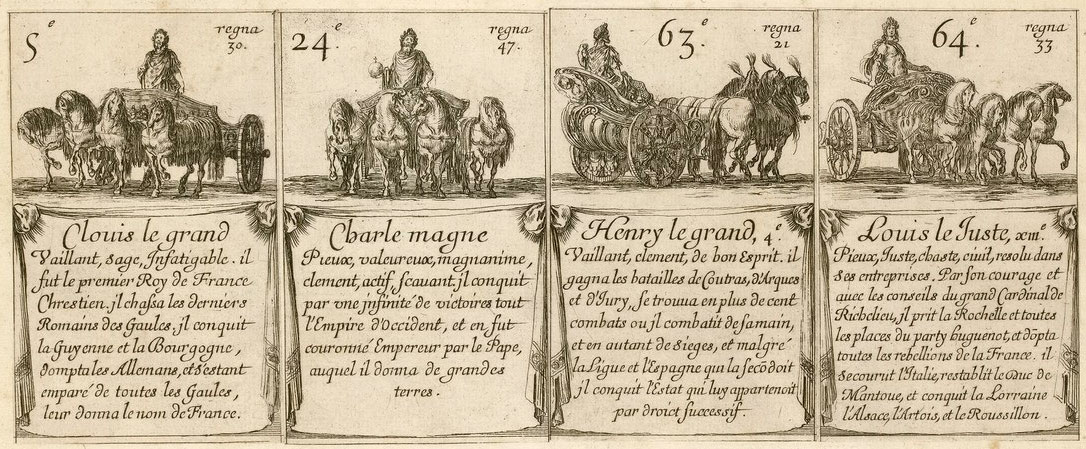 5e.
regna
30.
Clouis le grand
Vaillant, sage, Infatigable. il
fut le premier Roy de France
Chrestien. jl chassa les derniers
Romains des Gaules. jl conquit
la Guyenne et la Bourgogne,
dompta les Allemans, et s'estant
emparé de toutes les Gaules,
leur donna le nom de France.
24e.
regna
47.
Charle magne
Pieux, valeureux, magnanime,
clement, actif, scauant, jl conquit
par vne jnfinité de victoires tout
l'Empire d'Occident, et en fut
couronné Empereur par le Pape,
auquel il donna de grandes
terres.
63e.
regna
21
Henry le grand, 4e.
Vaillant, clement, de bon Esprit. il
gagna les batailles de Coutras, d'Arques
et d'Iury, se trouua en plus de cent
combats ou jl combatit de sa main,
et en autant de sieges, et malgré
la Ligue et l'Espagne qui la secōdoit
jl conquit l'Estat qui luy appartenoit
par droict successif.
64e.
regna
33
Louis le Iuste, xiiie.
Pieux, Iuste, chaste, ciuil, resolu dans
ses entreprises. Par son courage et
auec les conseils du grand Cardinal de
Richelieu, il prit la Rochelle et toutes
les places du party huguenot, et dōpta
toutes les rebellions de la France. il
secourut l'Italie, restablit le Duc de
Mantoue, et conquit la Lorraine
l'Alsace, l'Artois, et le Roussillon.